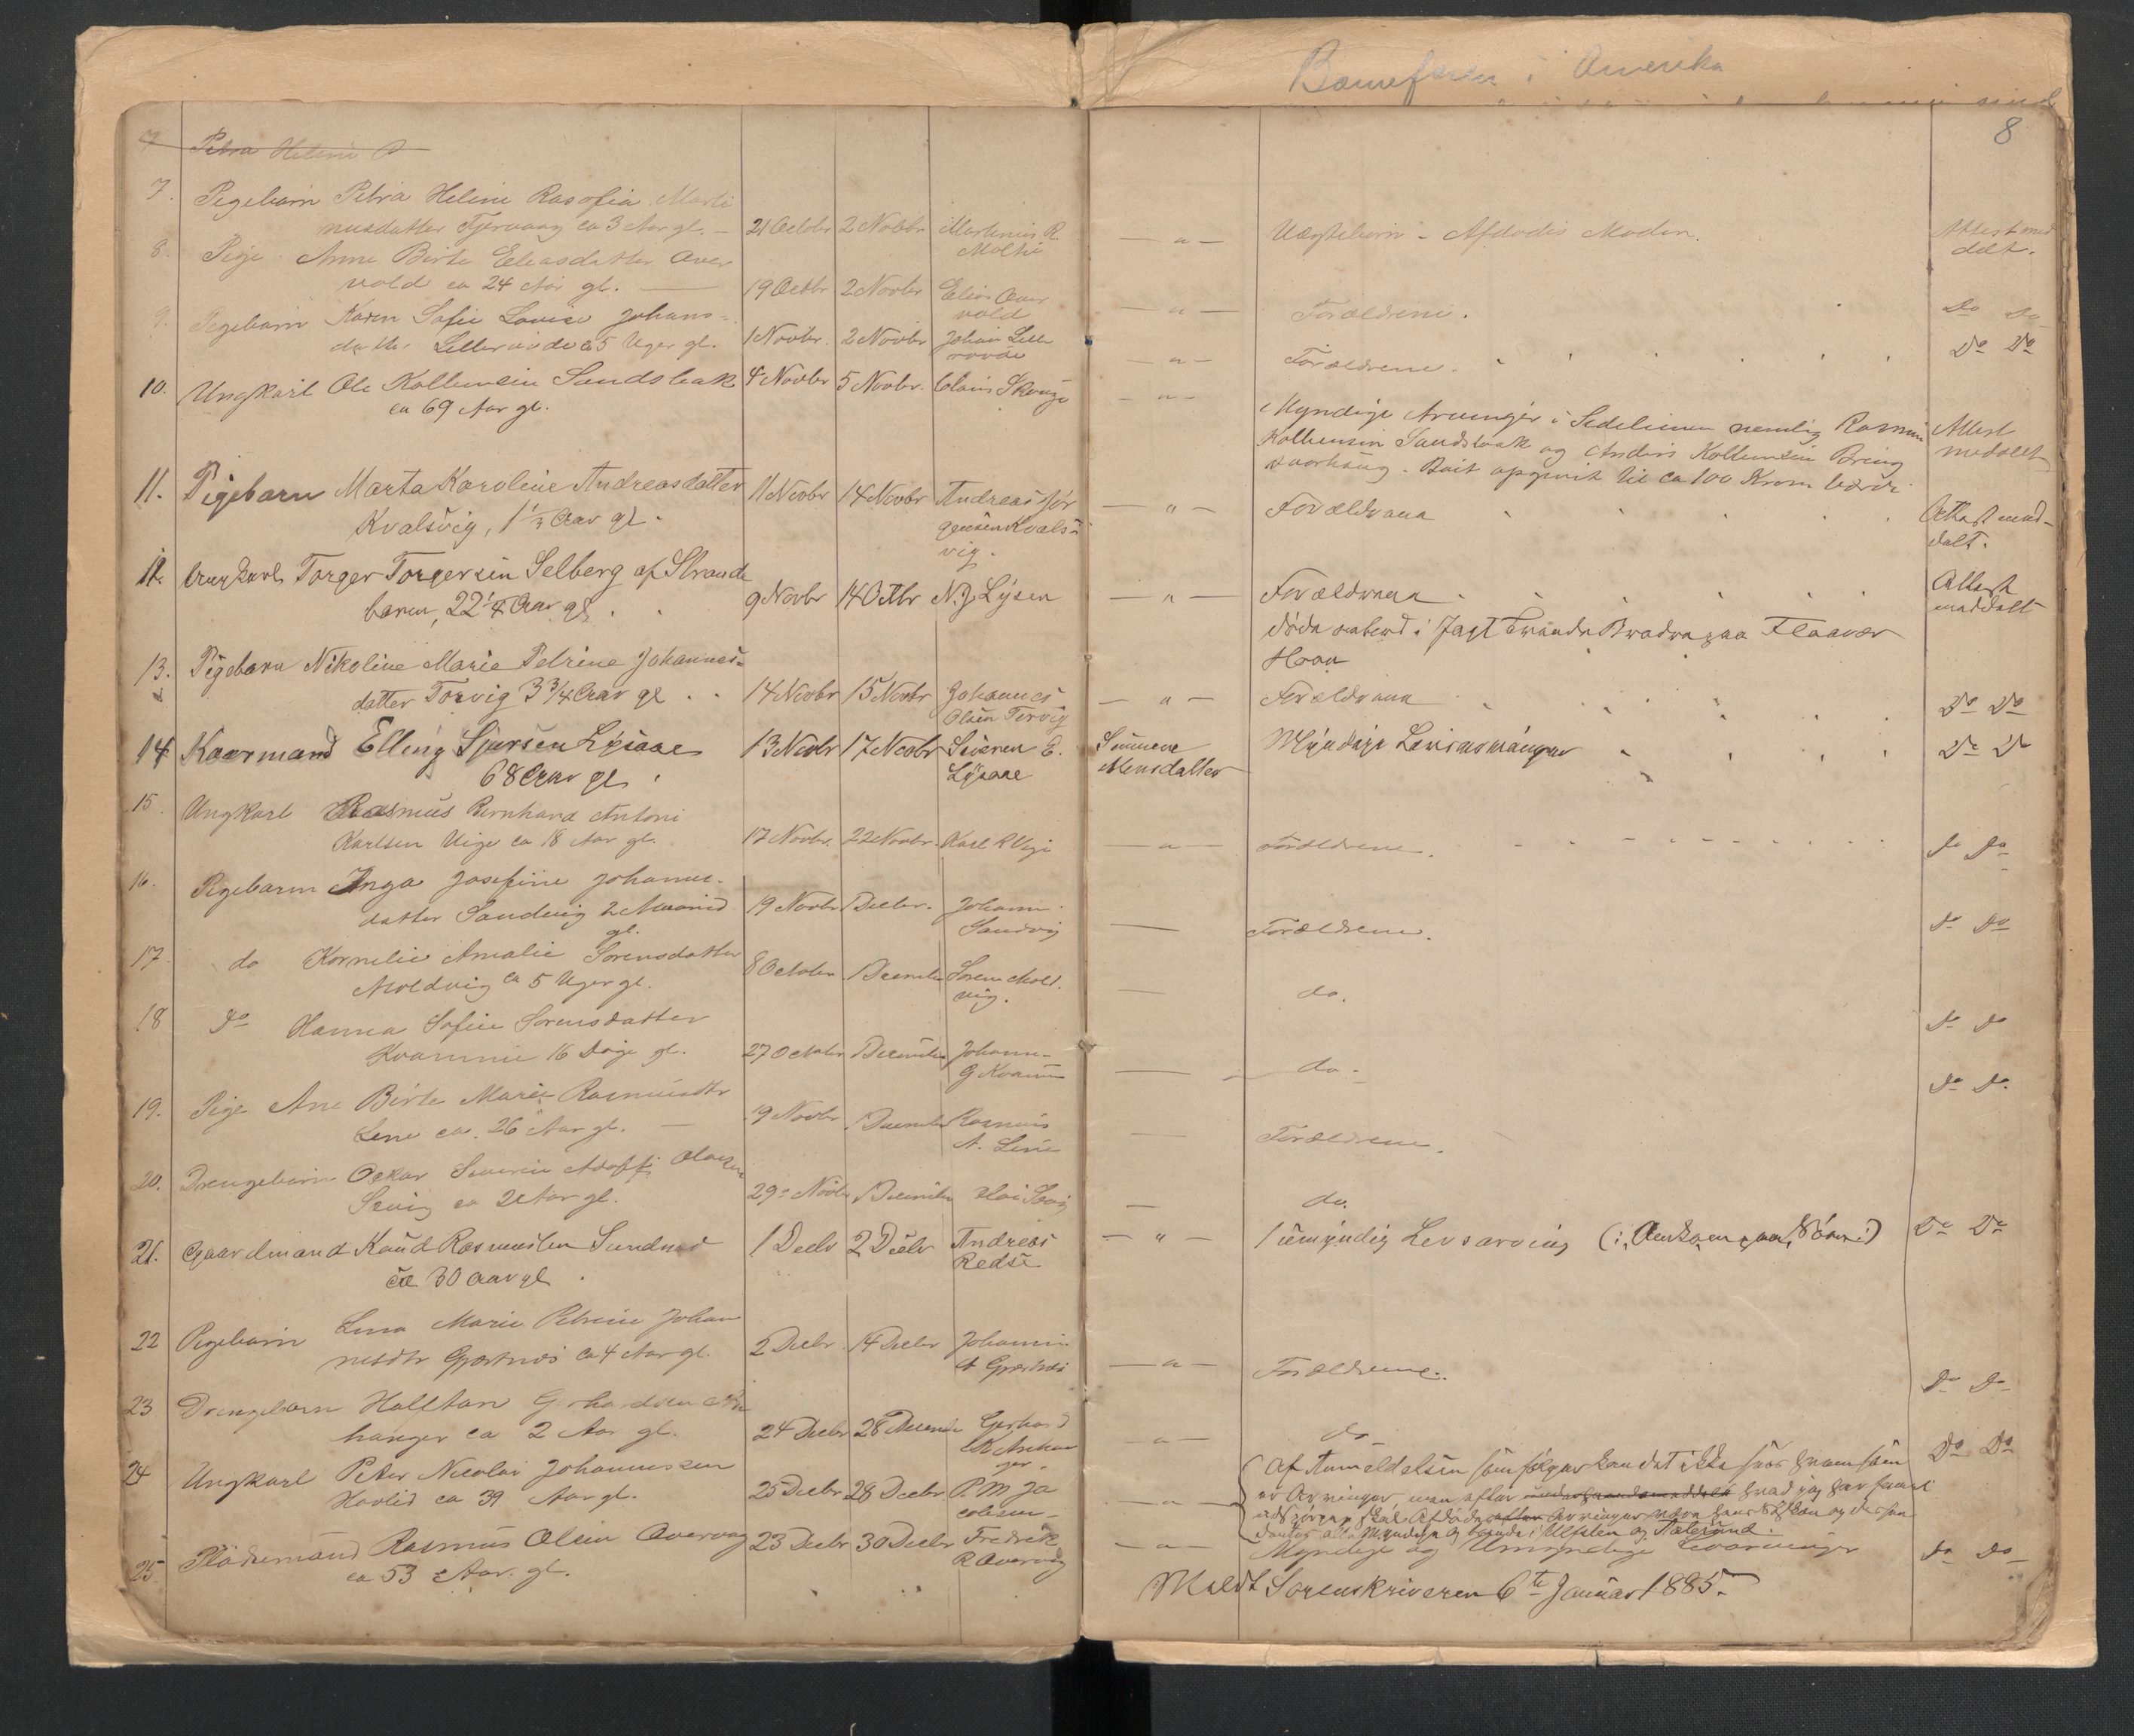 i Amerika
8
7 Petra Helene
7. Pigebarn Petra Heline Rasofia Marti
nusdatter Tjervaag ca 3 Aar gl. — 21 Octobr 2 Novbr Martinus R. Moltu — " — Uægtebarn - Afdødes Moder. Attest med
delt.
8. Pige Anne Birte Eliasdatter Aur
vold ca 24 Aar gl. — 19 Octbr 2 Novbr Elias Aur
vold — " — Forældrene. Do Do
9. Pigebarn Karen Sofie Lovise Johans-
datter Lillerovde ca 5 Uger gl. 1 Novbr. 2 Novbr Johan Lille
rovde — " — Forældrene. Do Do
10. Ungkarl Ole Kolbensen Sandsbak 4 Novbr 5 Novbr. Claus Skouge — " —
ca 69 Aar gl.
Myndige Arvinger i Sedelinien nemlig Rasmus
Kolbensen Sandsbak og Anders Kolbensen Bring
svorhaug. Boit opgivit til ca 100 Kroner Værdi.
Attest
meddelt
11. Pigebarn Marta Karoline Andreasdatter 11 Novbr 14 Novbr Andreas Jør — " — Forældrene Attest med-
Kvalsvig, 1 1/3 Aar gl. gensen Kvals-
vig. delt.
12. Ungkarl Torger Torgersen Selberg af Strande
barm, 22 1/4 Aar gl. 9 Novbr 14 Octbr N. J. Lysen — " — Forældrene Attest
meddelt
døde ombord i Jagt Brødre paa Flaavær
Havn
13. Pigebarn Nikoline Marie Petrine Johannes-
datter Torvig 3 3/4 Aar gl. 14 Novbr 15 Novbr Johannes
Olsen Torvig — " — Forældrene Do Do
14 Kaarmand Elling Sjursen Lysaae 13 Novbr 17 Novbr Severen E. Simmene Myndige Livsarvinger Do Do
68 Aar gl. Lysaae Monsdatter
15. Ungkarl Rasmus Bernhard Antoni
Karlsen Vige ca 18 Aar gl. 17 Novbr. 22 Novbr. Karl R Vige — " — Forældrene. Do Do
16. Pigebarn Inga Josefine Johannes-
datter Sandvig 2 Maaned
gl. 19 Novbr Decbr. Johannes
Sandvig — Forældrene. Do Do
17. do Kornelie Amalie Sorensdatter
Moldvig ca 5 Uger gl. 8 October December Soren Mold.
vig. — do. Do Do
18 Do Hanna Sofie Sorensdatter
Kvamme 16 Dage gl. 27 October December Johannes
G Kvamme — do. Do Do
19. Pige Ane Birte Marie Rasmusdtr
Lene ca. 26 Aar gl. — 19 Novbr December Rasmus
A. Lene — Forældrene.
20. Drengebarn Oskar Severin Adolf Olaisen
Sævig ca 2 Aar gl. 29 Novbr December Olai Sævig — do.
21. Gaardmand Knud Rasmussen Sundnes 1 Decbr 2 Decbr Andreas — " — 1 umyndig Livsarving (: Enkem paa Søn :) Do Do
ca 30 Aar gl. Redse
22 Pigebarn Lina Marie Petrine Johan
nesdtr Gjertnes ca 4 Aar gl. 2 Decbr. 14 Decbr Johannes
A Gjertnes — " — Forældrene. Do Do
23 Drengebarn Halftan Gerhardsen An
hanger ca 2 Aar gl. 24 Decbr 28 December Gerhard
R Anhan
ger. — " — do Do Do
24 Ungkarl Peter Nicolai Johannessen
Havlid ca 39 Aar gl. 25 Decbr 28 Decbr P. M Ja
cobsen — " —
Af Anmeldelsen som følger kan det ikke sees hvem som
er Arvinger, men efter hvad jeg har faaet
skal Afdødes Arvinger være hans Sødsken og disses
alle Myndige og boende i Ulfsten og Aalesund.
25. Flødemand Rasmus Olsen Aurvog 23 Decbr 30 Decbr Fredrik
R Aurvog — " — Myndige og Umyndige Livsarvinger Do Do
ca 53 Aar. gl.
Meldt Sorenskriveren 6te Januar 1885.